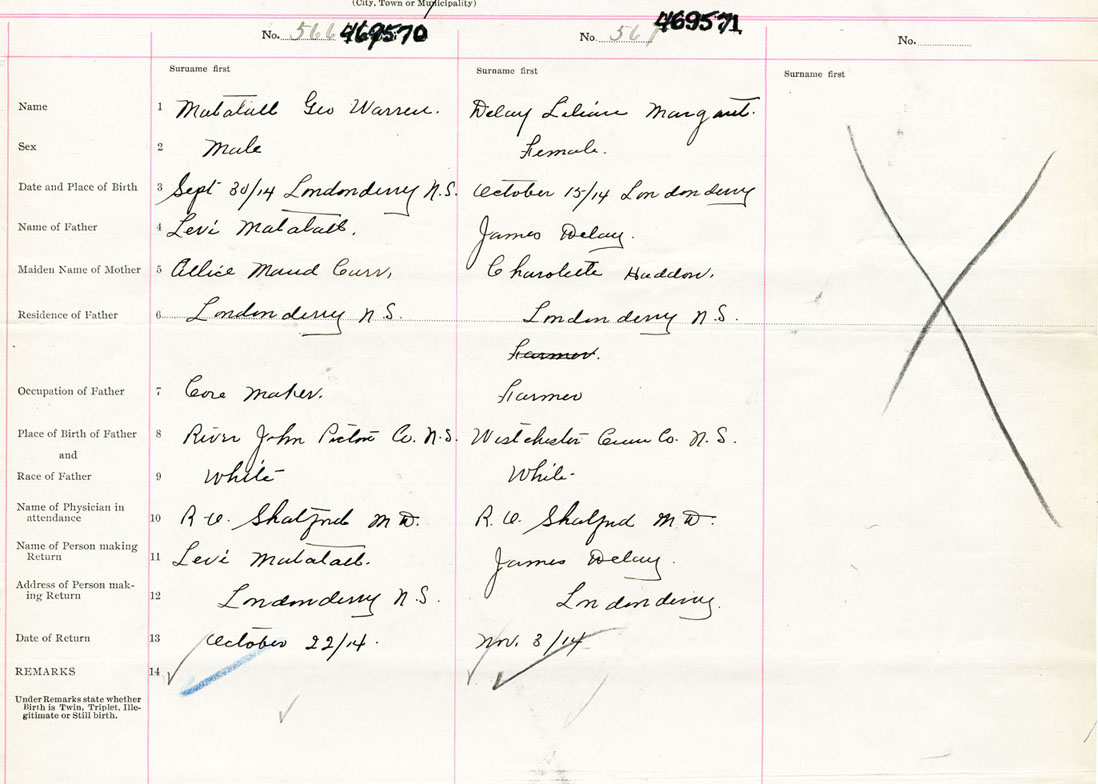 (City, Town or Municipality)
No. 566 469570 No. 567 469571 No.
Surname first Surname first Surname first
Name 1 Matatall Geo Warren. Delay Lilian Margaret.
Sex 2 Male Female.
Date and Place of Birth 3 Sept 30/14 Londonderry N.S. October 15/14 Londonderry
Name of Father 4 Levi Matatall. James Delay.
Maiden Name of Mother 5 Allice Maud Carr. Charolette Haddon.
Residence of Father 6 Londonderry N.S. Londonderry N.S.
Farmer.
Occupation of Father 7 Core Maker. Farmer
Place of Birth of Father 8 River John Pictou Co. N.S. Westchester Cum Co. N.S.
and
Race of Father 9 White White
Name of Physician in
attendance 10 R. M.D. R. M.D.
Name of Person making
Return 11 Levi Matatall. James Delay.
Address of Person mak-
ing Return 12 Londonderry N.S. Londonderry.
Date of Return 13 October 22/14. Nov. 3/14
REMARKS 14
Under Remarks state whether
Birth is Twin, Triplet, Ille-
gitimate or Still birth.